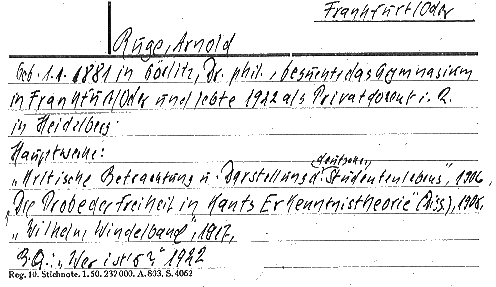 Frankfurt/Oder
Ruge, Arnold
Geb. 1.1.1881 in Görlitz, Dr. phil., besuchte das Gymnasium
in Frankfurt/Oder und lebte 1922 als Privatdozent i. R.
in Heidelberg.
Hauptwerke:
"Kritische Betrachtung u. Darstellung d. deutschen Studentenlebens", 1906,
"Die Probe der Freiheit in Kants Erkenntnistheorie" (Diss.), 1908,
"Wilhelm Windelband", 1917,
B.Q.: "Wer ist's?" 1922
Reg. 10. Stichnote. 1. 50. 232000. A. 803. S. 4062